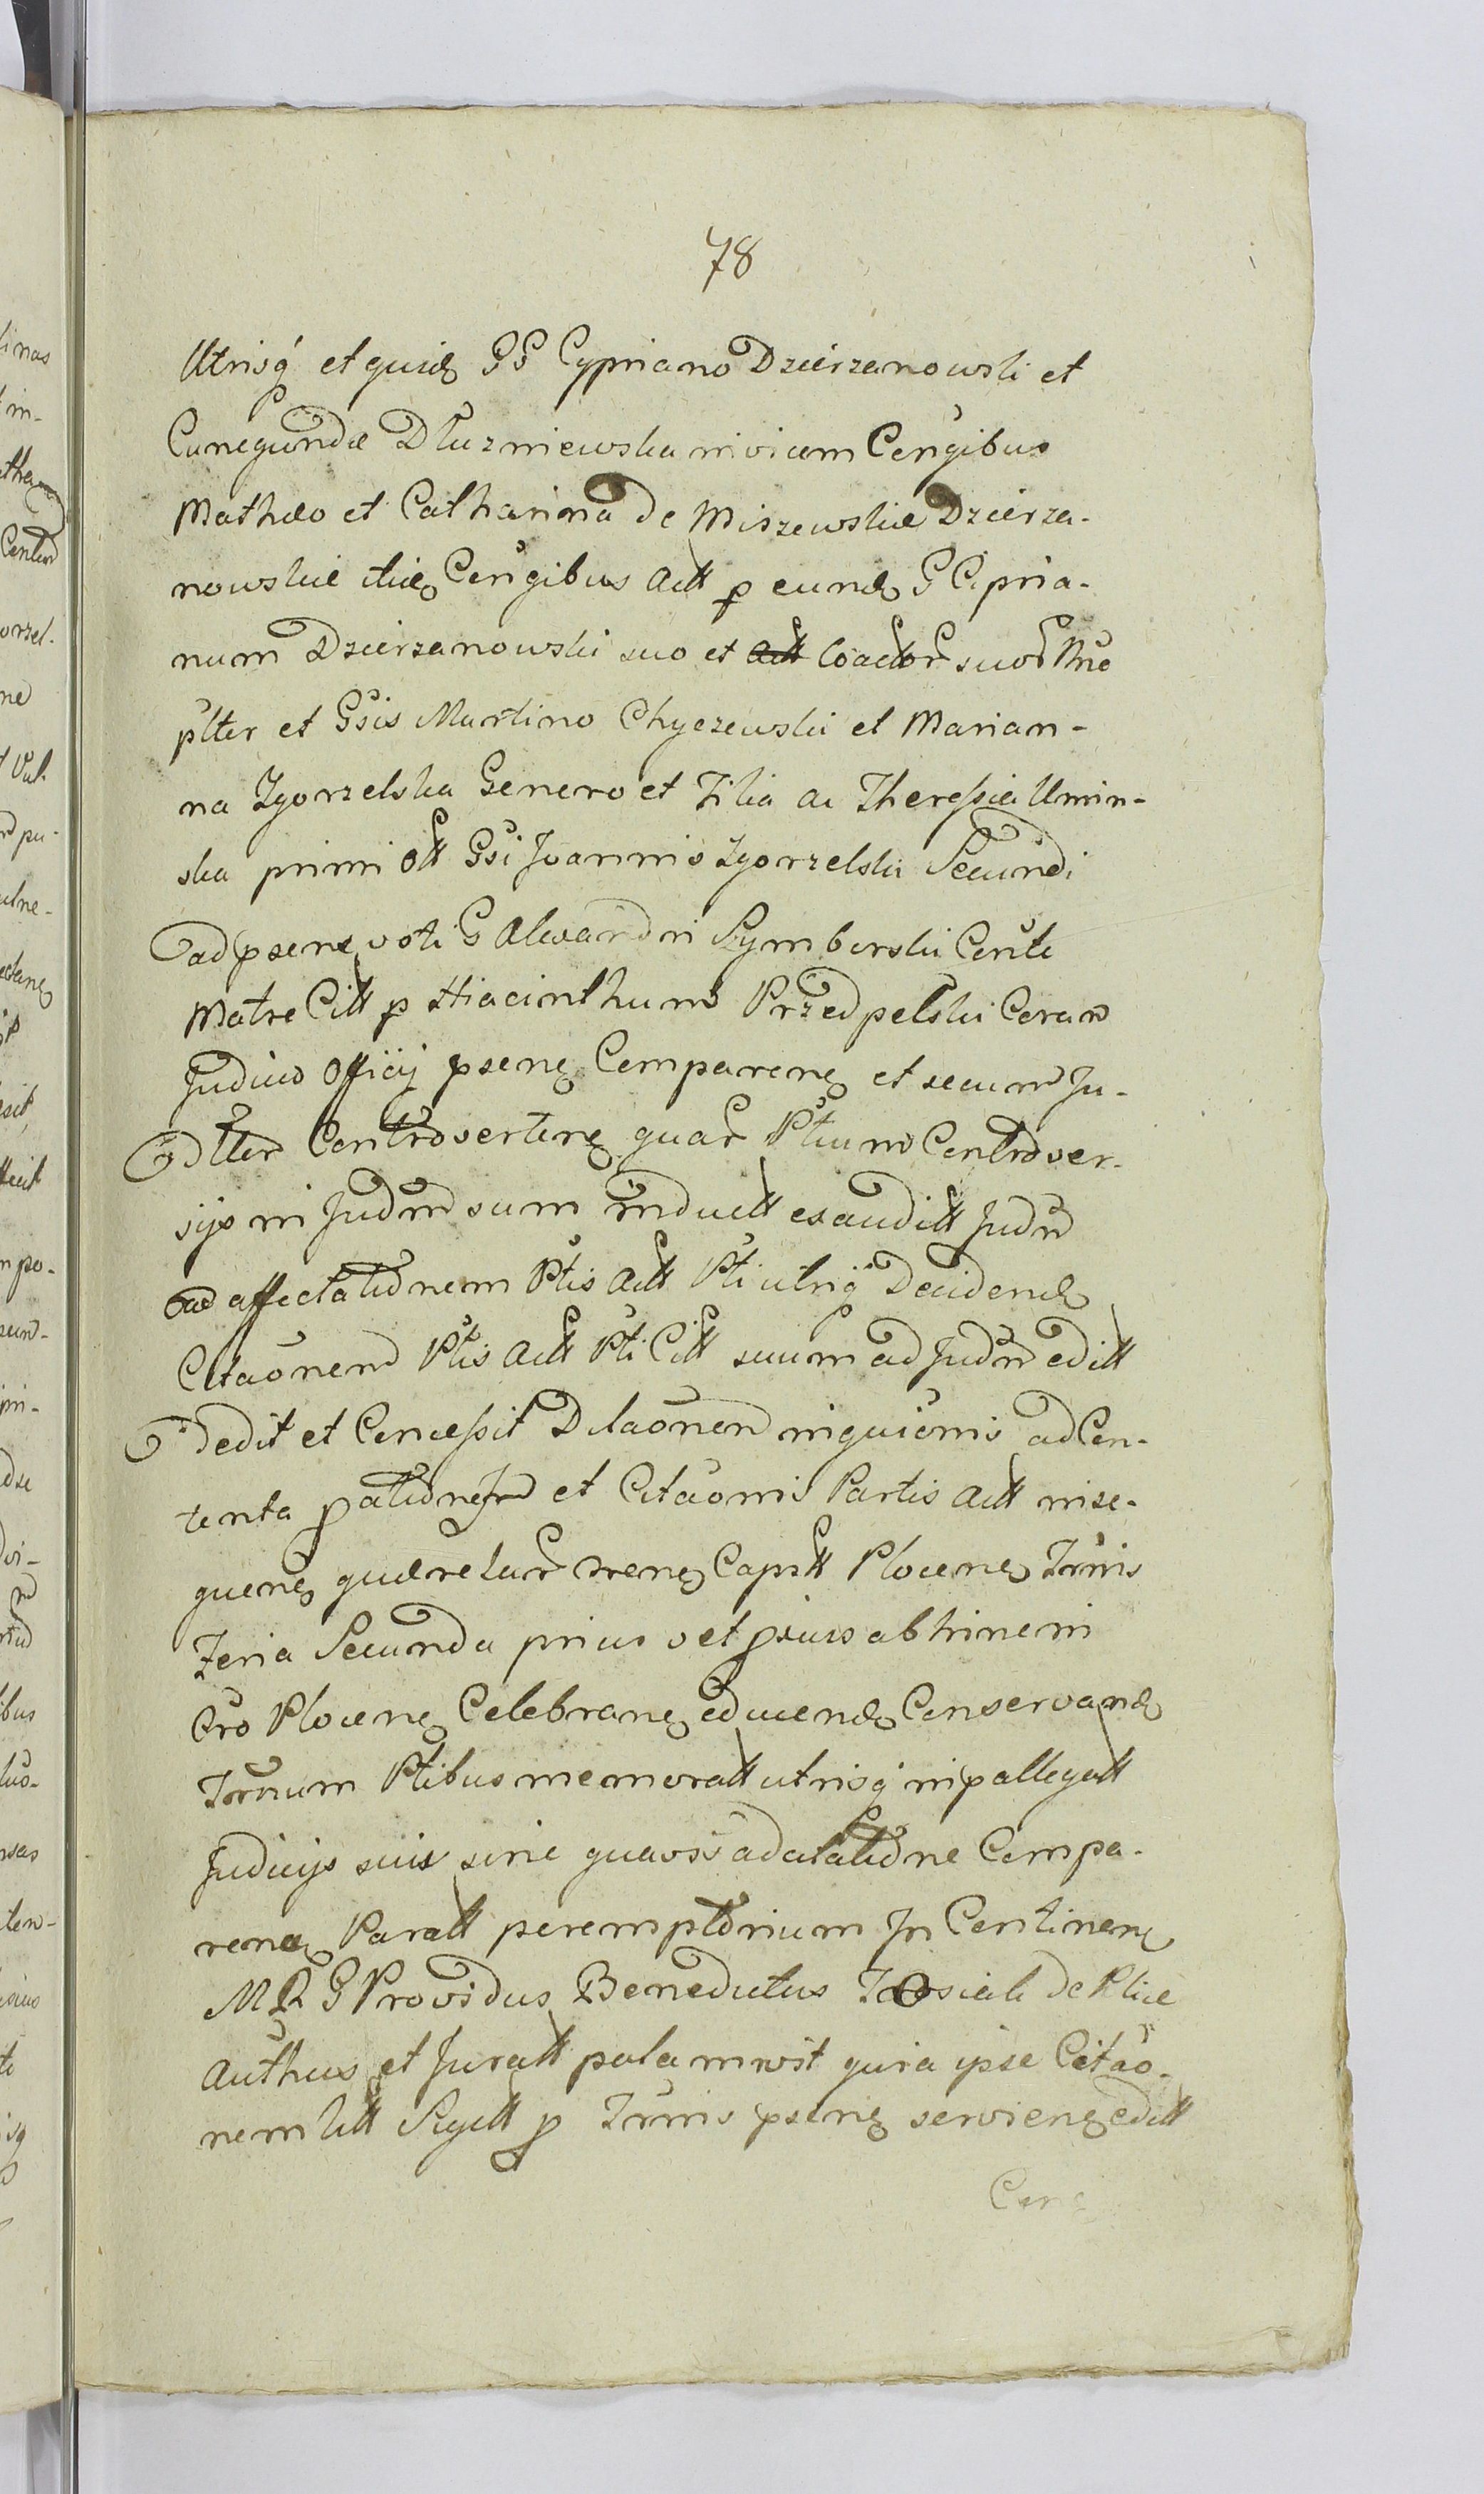 78
Utrisq́ et quidę GG Cypriano Dzierzanowski et
Cunegunda Dłuzniewska invicem Conǵibus
Mathæo et Catharina de Miszewskie Dzierza-
nowskie itidę Conǵibus Actt p eundę G Cipria-
num Dzierzanowski suo et Actt Coactor suor Nne
pltter et Gsis Martino Chyczewski et Marian-
na Zgorzelska Genero et Filia ac Theressia Umin-
ska primi Ott Gsi Joannis Zgorzelski Secundi
ad psens voti G Alexandri Szymborski Conte
Matre Citt p Hiacinthum Przedpelski Coram
Judicio Officij psenę Comparenę et secum Ju-
dtter Controvertenę quar Ptium Controver-
sijs in Judm suum induett exauditt Judm
ad affectationem Ptis Actt Pti utriq́ Decidendę
Citaonem Ptis Actt Pti Citt suum ad Judm editt
dedit et Concessit Dilaonem inquionis ad Con-
tenta pationem et Citaonis Partis Actt inse-
quenę quæretur Terrenę Capitt Plocenę Trmis
Feria Secunda prius vel pxius abhinc in
Cro Plocenę Celebranę educendę Conservandę
Trmum Ptibus memoratt utrisq́ in pallegatt
Judicijs suis sine quavsi adcitatione Compa-
renđ Paratt peremptorium In Continenę
MRG Providus Benedictus Josiak de Plice
Authus et Juratt palam rvit quia ipse Citao-
nem litt Sigitt p Trmis psenę servienę editt